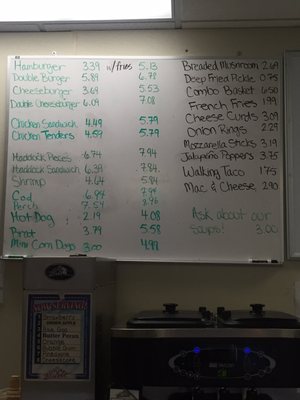 Hamburger 3.39 w/fries 5.13
Double Burger 5.89 6.78
Cheeseburger 3.69 5.53
Double Cheeseburger 6.09 7.08
Chicken Sandwich 4.49 5.79
Chicken Tenders 4.59 5.79
Haddock Pieces 6.74 7.94
Haddock Sandwich 6.39 7.84
Shrimp 4.64 5.84
Cod 6.94 7.94
Perch 7.54 8.96
Hot Dog 2.19 4.08
Brat 3.79 5.58
Mini Corn Dogs 3.00 4.98
Breaded Mushroom 2.69
Deep Fried Pickle 0.75
Combo Basket 6.50
French Fries 1.99
Cheese Curds 3.09
Onion Rings 2.29
Mozzarella Sticks 3.19
Jalapeño Poppers 3.75
Walking Taco 1.75
Mac & Cheese 2.90
Ask about our
soups! 3.00
NOW SERVING
Strawberry
Butter Pecan
Orange